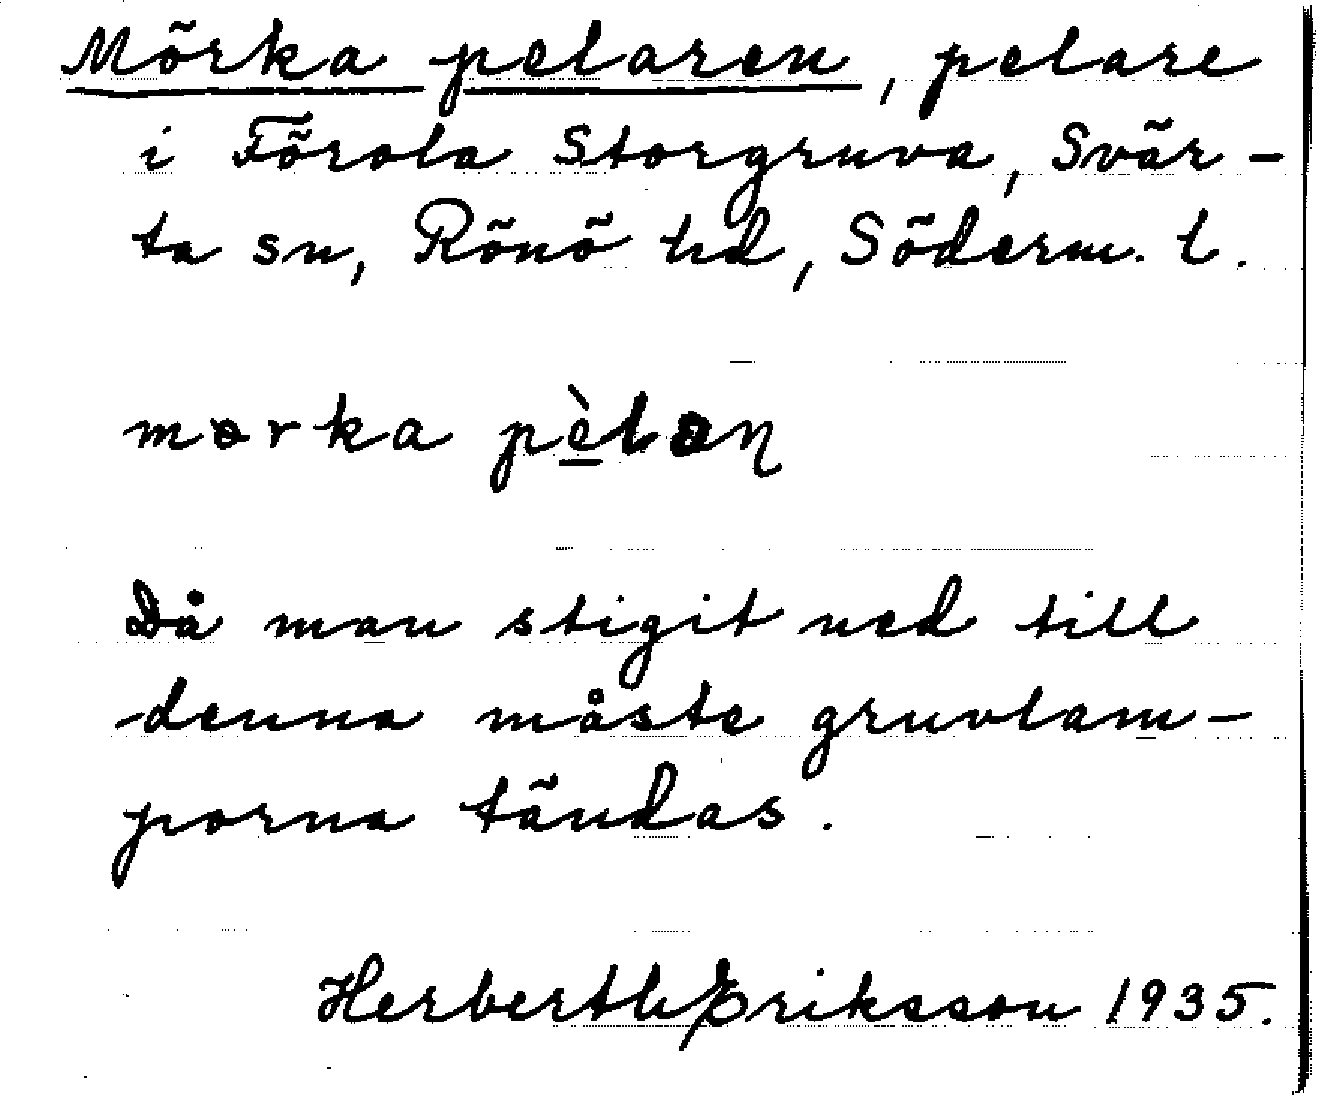 Mörka pelaren, pelare
i Förola Storgruva, Svär-
ta sn, Rönö hd, Söderm. l.
mərka pèləɳ
Då man stigit ned till
denna måste gruvlam-
porna tändas.
Herberth Eriksson 1935.